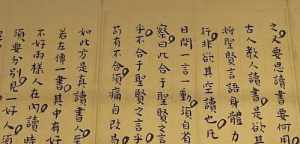 之人要思讀書要何用
古人教人讀書是欲其
將聖賢言語身體力
行非欲其空讀也凡
日間一言一動須自省
察曰此合于聖賢之言乎
不合于聖賢之言乎
苟有不合須痛自改易
如此方是真讀書人至
若左傳一書其中有好
不好兩樣人在內讀時
須要分別見一好人須